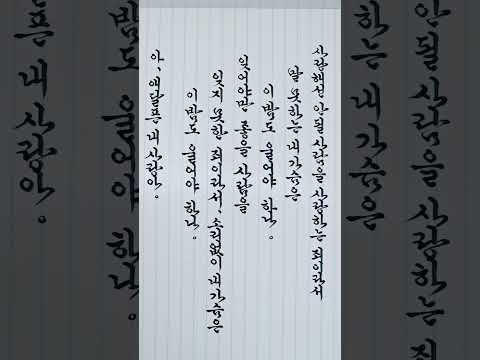 사랑해선 안될 사람을 사랑하는 죄이라서
말 못하는 내 가슴은
이 밤도 울어야 하나.
잊어야만 좋을 사람을
잊지 못한 죄이라서, 소리없이 내 가슴은
이 밤도 울어야 하나.
아, 애달픈 내 사랑아.